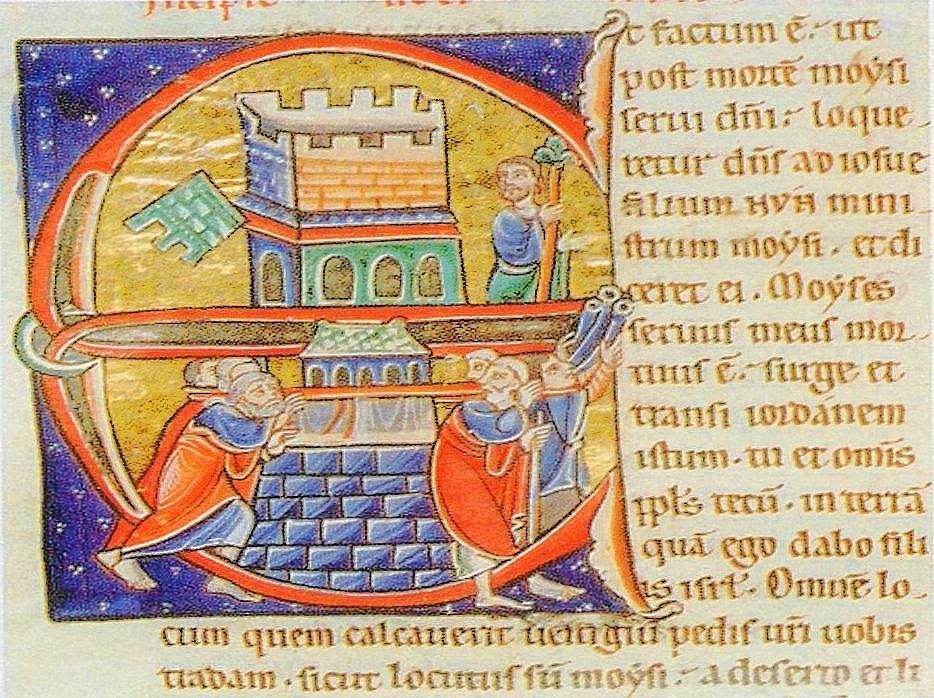 Incipit liber
Et factum ē. ut
post mortē moysi
serui dn̄i. loque
retur dn̄s ad iosue
filium nun mini
strum moysi. et di
ceret ei. Moyses
seruus meus mor
tuus ē. surge et
transi iordanem
istum. tu et omīs
ppl̄s tecū. in terrā
quā ego dabo fili
is isr̄l. Omnē lo
cum quem calcauerit uestigiū pedis ur̄i uobis
tradam. sicut locutus sū moysi. a deserto et li